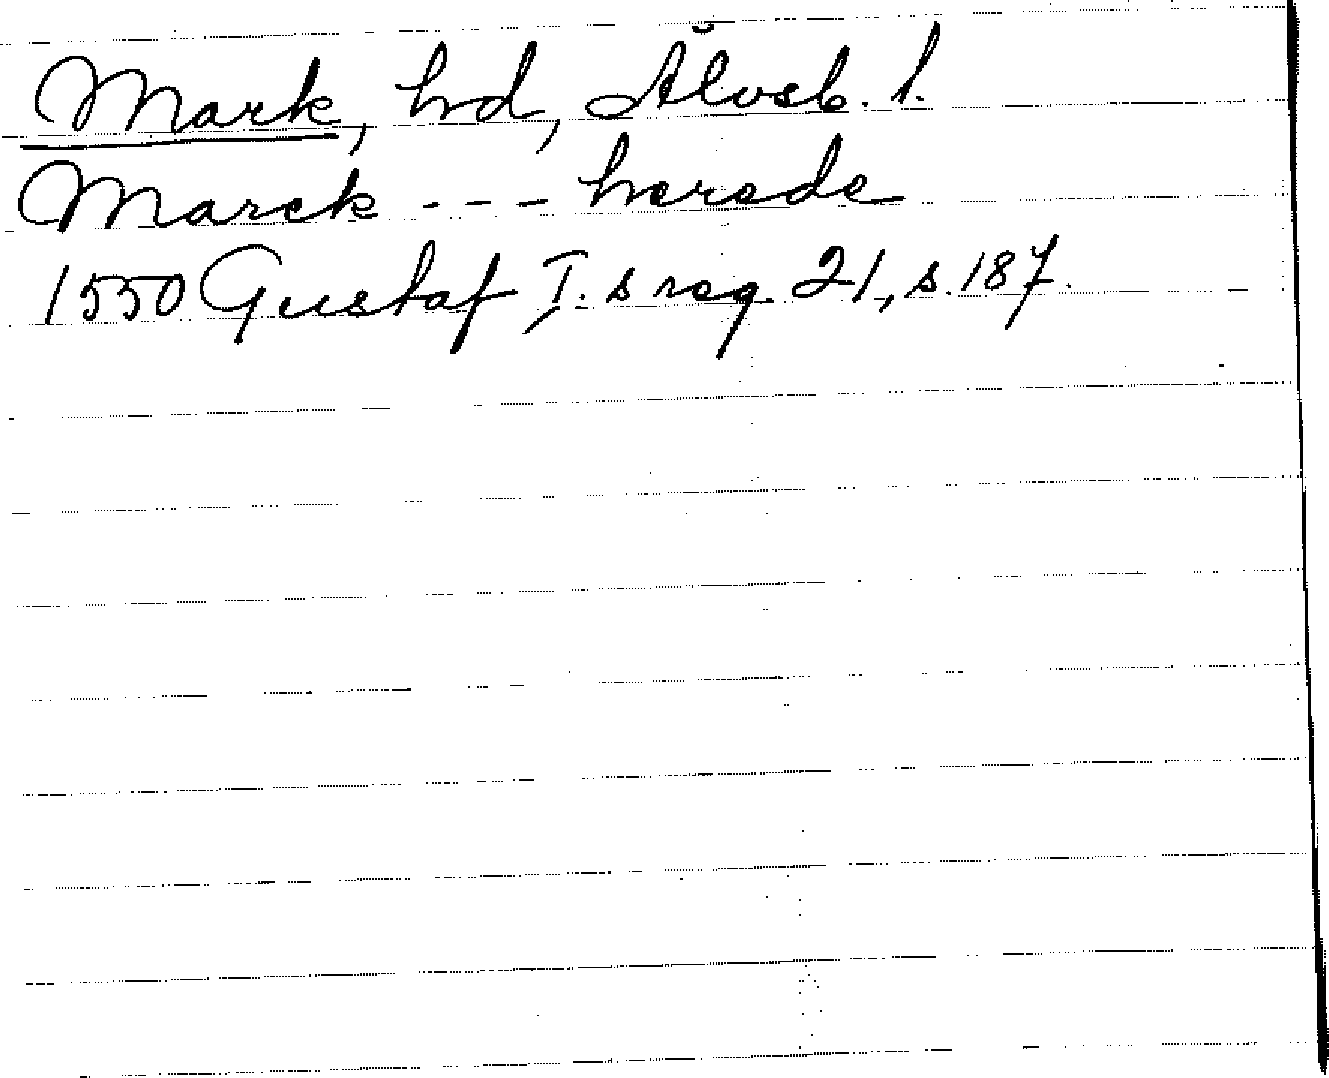 Mark, hd, Älvsb. l.
Marck - - - herede
1550 Gustaf I. s reg. 21, s. 187.